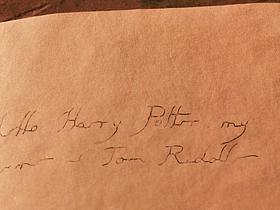 Hello Harry Potter. my
Tom Riddle